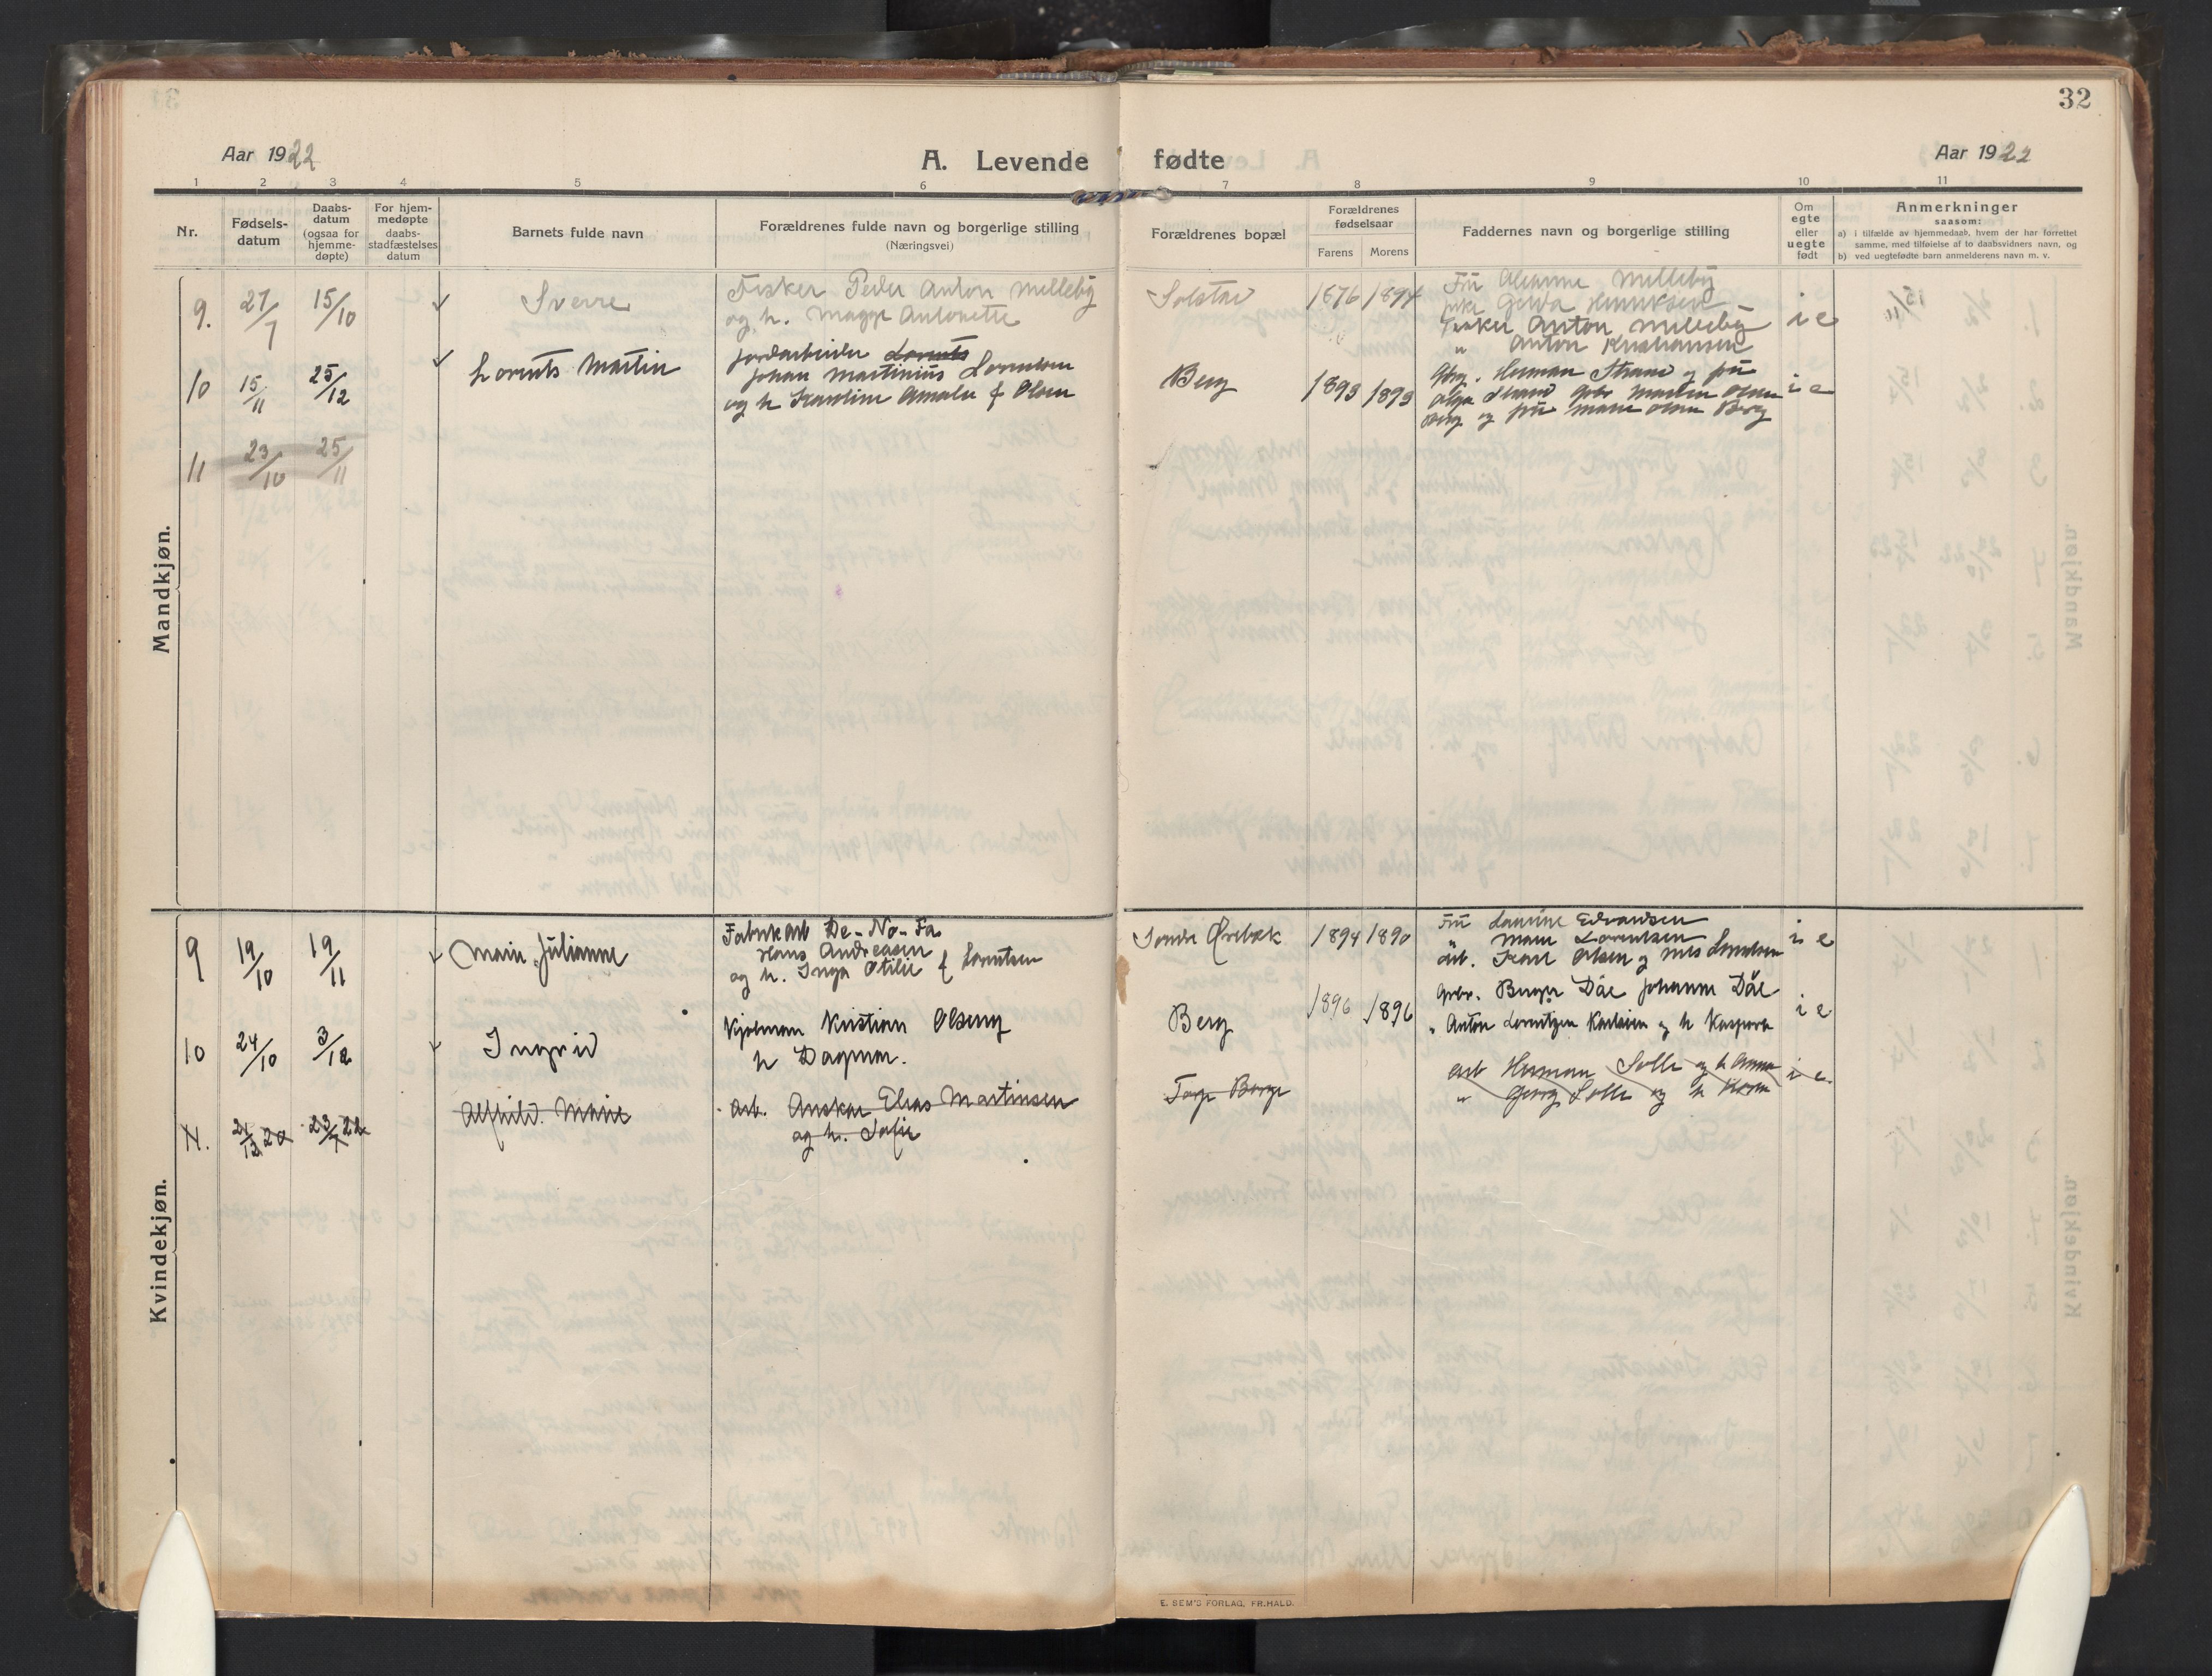 32
Aar 1922
A. Levende fødte
Aar 1922
1 2 3 4 5 6 7 8 9 10 11
Nr.
Fødsels-
datum
Daabs-
datum
(ogsaa for
hjemme-
døpte)
For hjem-
medøpte
daabs-
stadfæstelses
datum
Barnets fulde navn
Forældrenes fulde navn og borgerlige stilling
(Næringsvei)
Forældrenes bopæl
Forældrenes
fødselsaar
Farens Morens
Faddernes navn og borgerlige stilling
Om
egte
eller
uegte
født
Anmerkninger
saasom:
a) i tilfælde av hjemmedaab, hvem der har forrettet
samme, med tilføielse af to daabsvidners navn, og
b) ved uegtefødte barn anmelderens navn m. v.
Mandkjøn.
9. 27/7 15/10 Sverre
Fisker Peder Anton Melleby
og h. Magge Antonette
Solstad 1876 1894
Frü Oleanne Melleby
pike Gerda Henriksen
Fisker Anton Melleby
" Anton Kristiansen
i e
15/11
10 15/11 25/12 Lorents Martin
jordarbeider Lorents
Johan Martinius Lorentsen
og h Karoline Amalie f Olsen
Berg 1893 1893
Gbr. Herman Strand og frü
Olga Strand gbr Martin Olsen
Berg og frü Marie Olsen Berg
i e
11 23/10 25/11
Kvindekjøn.
9 19/10 19/11 Marie Julianne
Fabrikarb De-No-Fa
Hans Andreasen
og h. Inga Otilie f Lorentsen
Søndre Ørebæk 1894 1890
Frü Laurine Edvardsen
" Marie Lorentsen
arb. Karl Olsen og Nils Lorentsen
i e
10 24/10 3/12 Ingrid
Kjølman Kristian Olseng
h Dagmar.
Berg 1896 1896
Gbr. Birger Dåe Johanne Dåe
" Anton Lorentzen Karlsien og h Kaspara
i e
11. 21/12 20 23/7 22 Alfhild Marie
Arb. Anskar Elias Martinsen
og h. Sofie
Torp Borge
arb Herman Solli og h Anna
" Georg Solli og h
i e.
E. SEM'S FORLAG, FR.HALD.